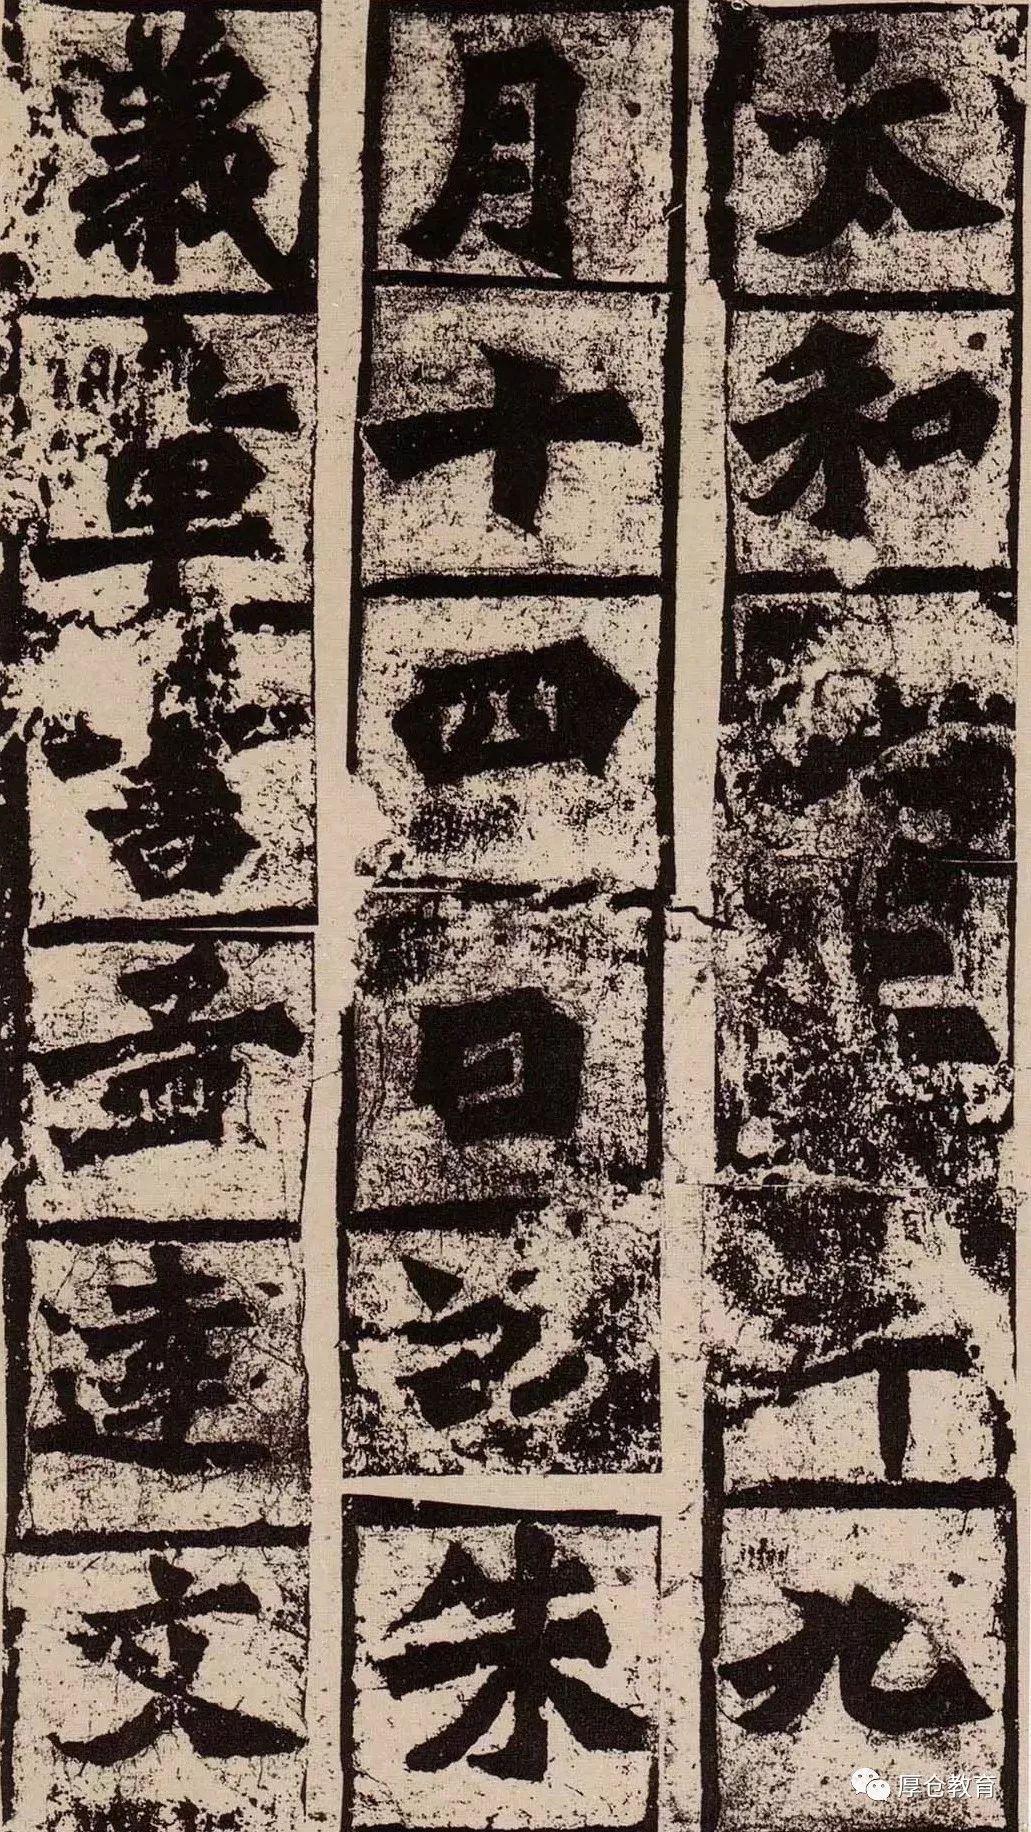 太和二年九
月十四日訖朱
義章書孟達文
厚仓教育